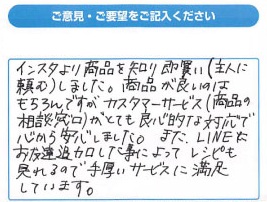 ご意見・ご要望をご記入ください
インスタより商品を知り即買い(主人に
頼む)しました。商品が良いのは
もちろんですがカスタマーサービス(商品の
相談窓口)がとても良心的な対応で
心から安心しました。また、LINEな
お友達追加した事によってレシピも
見れるので手厚いサービスに満足
しています。